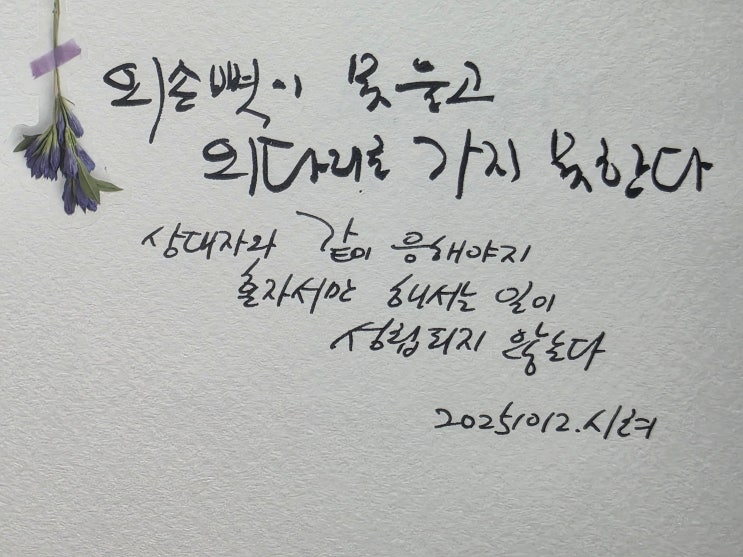 외손뼉이 못 울고
외다리로 가지 못한다
상대자와 같이 응해야지
혼자서만 해서는 일이
성립되지 않는다
20251012. 시혀